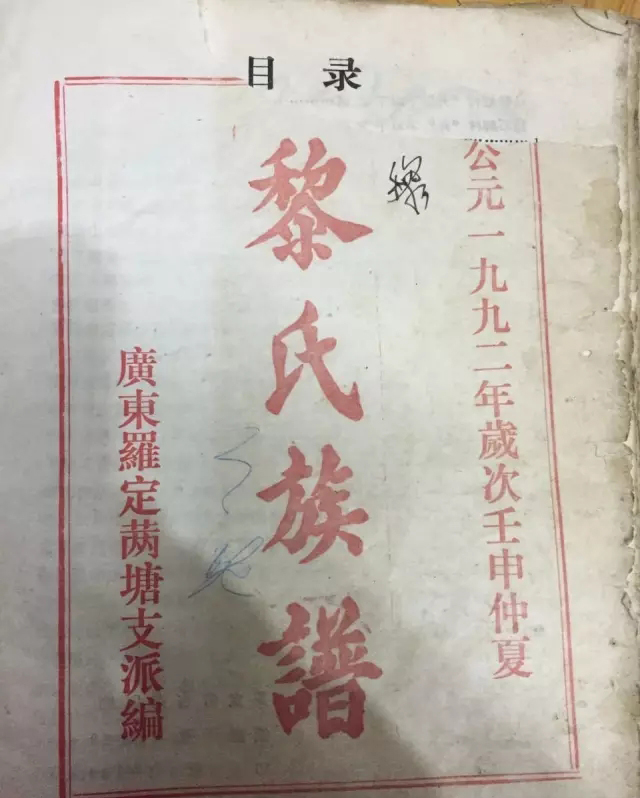 目录
公元一九九二年歲次壬申仲夏
黎氏族譜
廣東羅定苪塘支派編